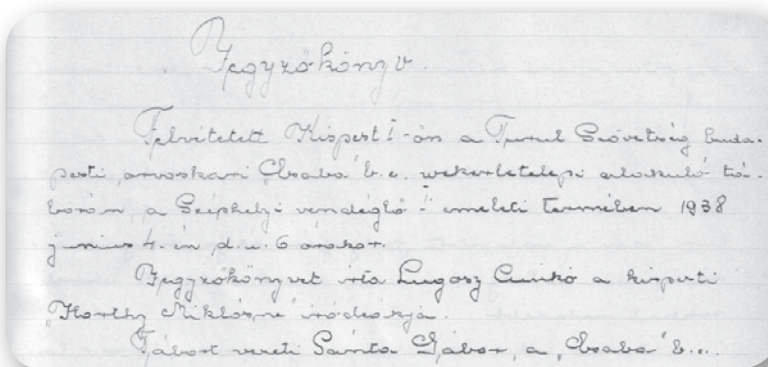 Jegyzőkönyv.
Felvétetett Kispest!-ön a Turul Szövetség buda-
pesti orvoskari „Csaba” b.e. wekerletelepi alakuló tá-
borán, a Széphelyi vendéglő I. emeleti termében 1938
junius 4.-én d.u. 6 órakor.
Jegyzőkönyvet irta Lugosy Enikő a kispesti
„Horthy Miklósné” iródeákja.
Tábort vezeti Sánta Gábor, a „Csaba” b.e.